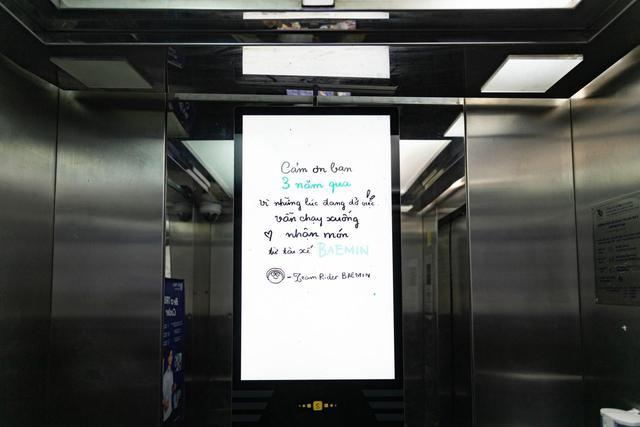 Cảm ơn bạn
3 năm qua
vì những lúc đang dở việc
vẫn chạy xuống
nhận món
từ tài xế BAEMIN
- Team Rider BAEMIN